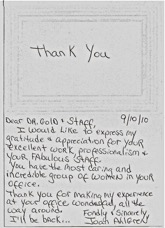 Thank You
9/10/10
Dear DR. Gold & Staff,
I would like to express my
gratitude & appreciation for your
excellent work, professionalism &
your fabulous staff.
You have the most caring and
incredible group of women in your
office.
Thank you for making my experience
at your office wonderful, all the
way around.
Fondly & Sincerely,
I'll be back...